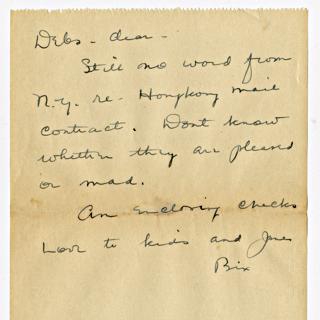 Debs - dear -
Still no word from
N.Y. re - Hongkong mail
contract. Dont know
whether they are pleased
or mad.
Am enclosing checks
Love to kids and
Bix